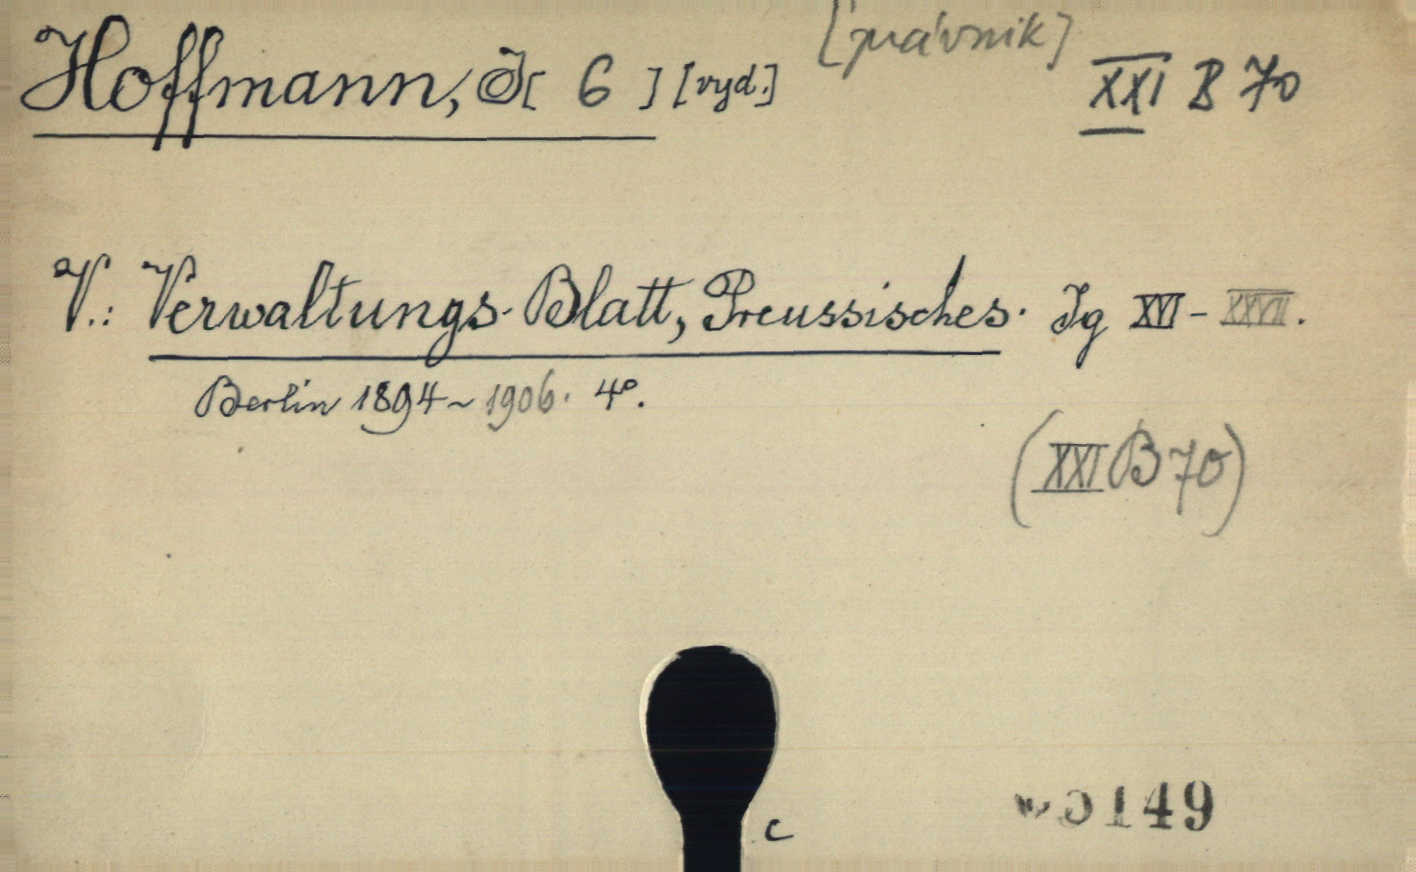 [právník]
Hoffmann, J[ 6 ] [vyd.] XXI B 70
V.: Verwaltungs-Blatt, Preussisches. Jg XVI - XXVII.
Berlin 1894 ~ 1906. 4°.
(XXI B 70)
149
c